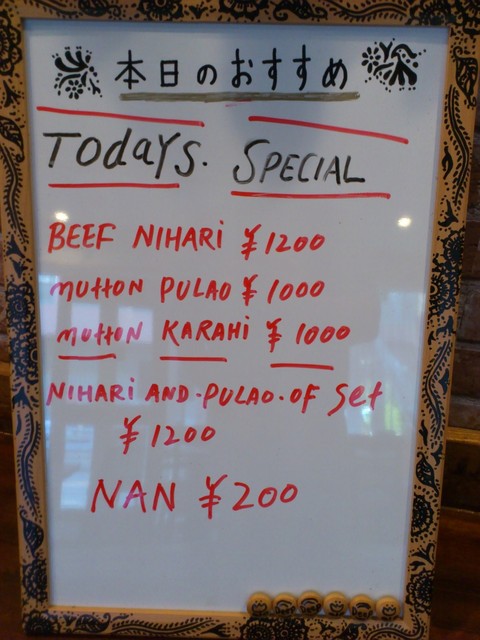 本日のおすすめ
TodaYs. SPECIAL
BEEF NIHARi ¥1200
mutton PULAO ¥1000
mutton KARAHi ¥1000
NiHARi AND.PULAO.OF Set
¥1200
NAN ¥200